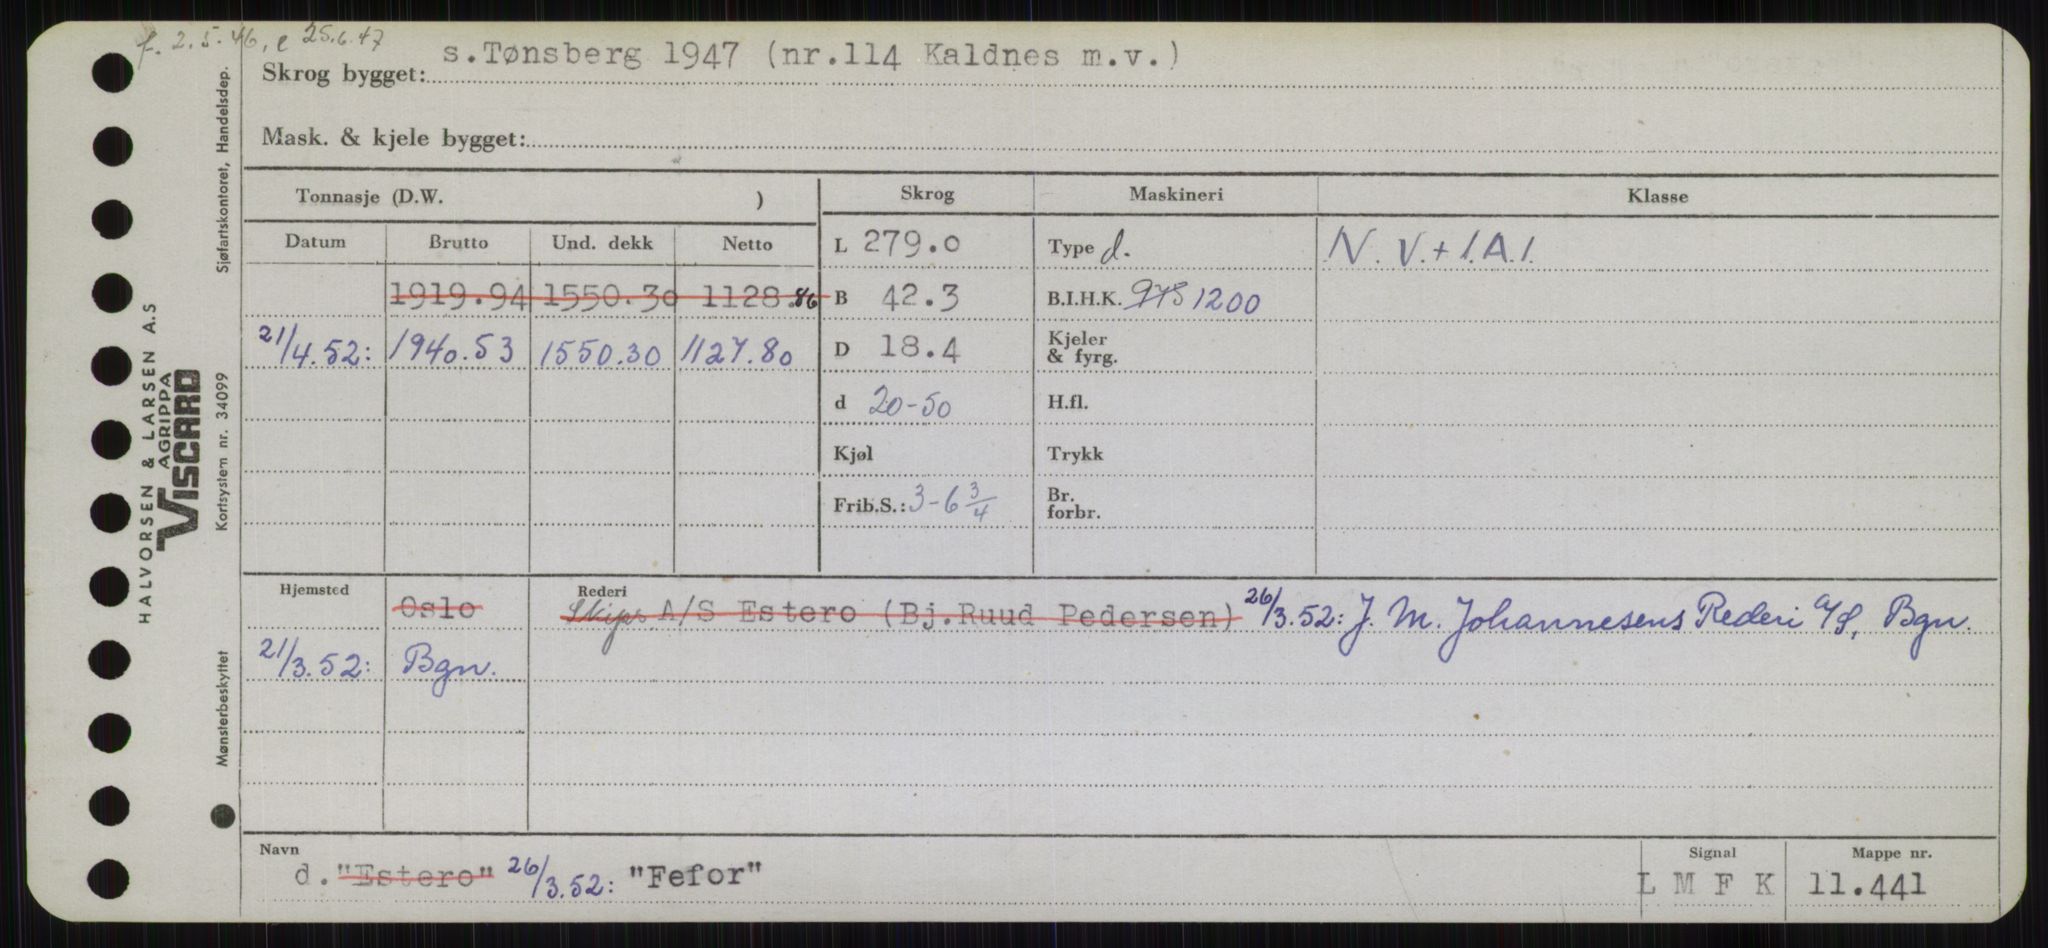 f. 2.5.46, e 25.6.47
Skrog bygget: s.Tønsberg 1947 (nr.114 Kaldnes m.v.)
Mask. & kjele bygget:
Tonnasje (D.W. )
Skrog
Maskineri
Klasse
Datum Brutto Und. dekk Netto
L 279.0
Type d.
N.V. + 1.A.1.
1919.94 1550.30 1128.86
B 42.3
B.I.H.K. 975 1200
21/4.52: 1940.53 1550.30 1127.80
D 18.4
Kjeler
& fyrg.
d 20-50
H.fl.
Kjøl
Trykk
Frib.S.: 3-6 3/4
Br.
forbr.
Hjemsted Oslo
Rederi Skips A/S Estero (Bj.Ruud Pedersen) 26/3.52: J. M. Johannesens Rederi A/S, Bgn.
21/3.52: Bgn.
Navn
d. "Estero" 26/3.52: "Fefor"
Signal
L M F K
Mappe nr.
11.441
HALVORSEN & LARSEN A.S
AGRIPPA
VISCARD
Sjøfartskontoret, Handelsdep.
Kortsystem nr. 34099
Mønsterbeskyttet